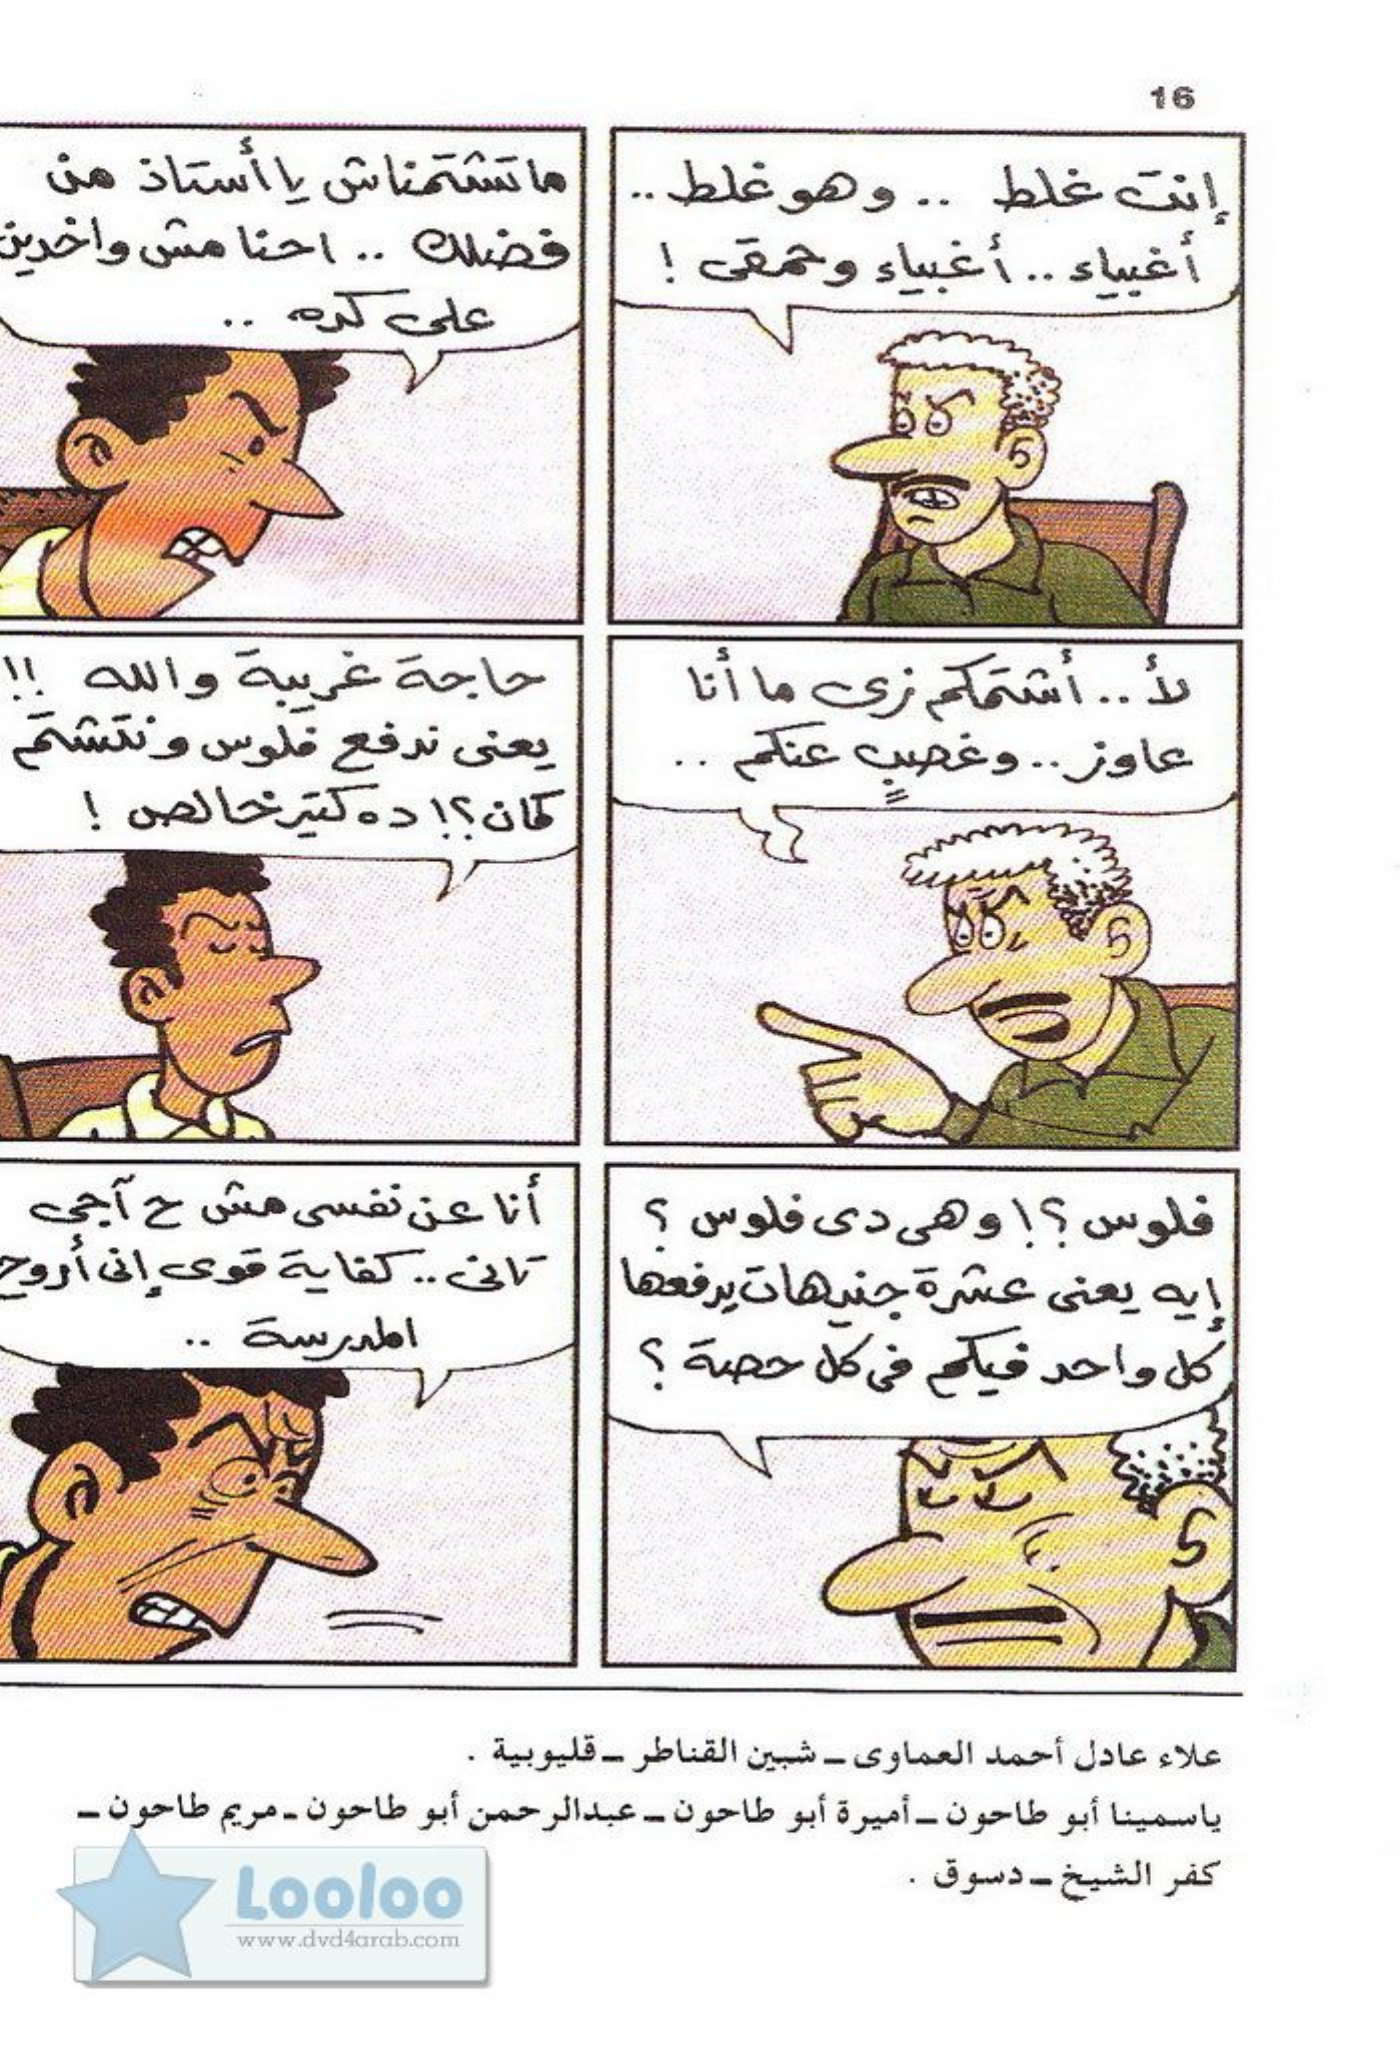 16
إنت غلط .. وهو غلط ..
أغبياء .. أغبياء وحمقى !
ماتشتمناش يا أستاذ من
فضلك .. احنا مش واخدين
على كده ..
لأ .. أشتمكم زى ما أنا
عاوز .. وغصبٍ عنكم ..
حاجة غريبة والله !!
يعنى ندفع فلوس ونتشتم
كمان ؟! ده كتير خالص !
فلوس ؟! وهى دى فلوس ؟
إيه يعنى عشرة جنيهات يدفعها
كل واحد فيكم فى كل حصة ؟
أنا عن نفسى مش ح آجى
تانى .. كفاية قوى إنى أروح
المدرسة ..
علاء عادل أحمد العماوى ــ شبين القناطر ــ قليوبية .
ياسمينا أبو طاحون ــ أميرة أبو طاحون ــ عبدالرحمن أبو طاحون ــ مريم طاحون ــ
كفر الشيخ ــ دسوق .
Looloo
www.dvd4arab.com